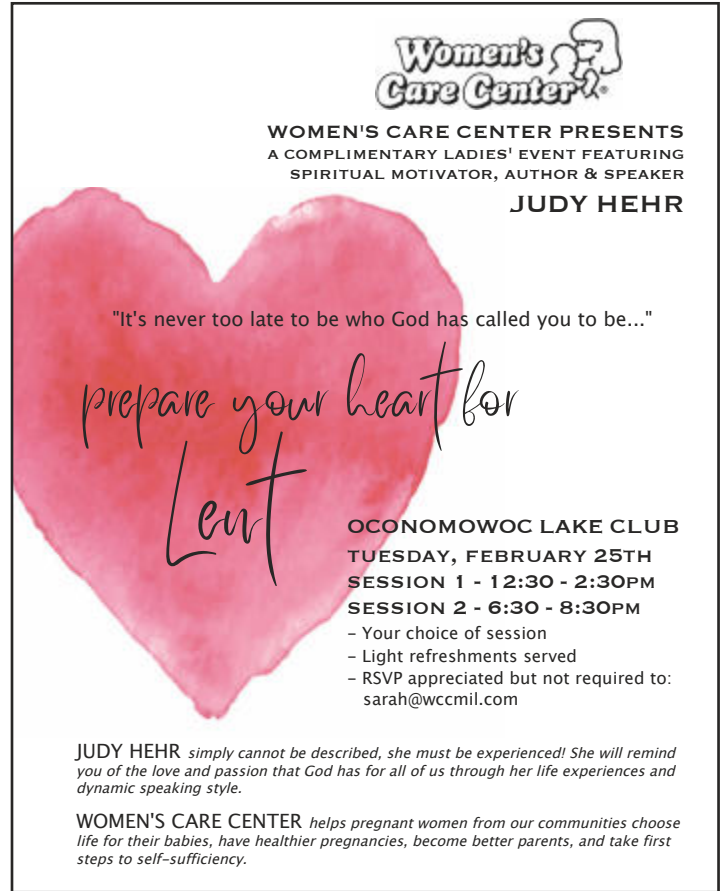 Women's
Care Center®
WOMEN'S CARE CENTER PRESENTS
A COMPLIMENTARY LADIES' EVENT FEATURING
SPIRITUAL MOTIVATOR, AUTHOR & SPEAKER
JUDY HEHR
"It's never too late to be who God has called you to be..."
prepare your heart for
Lent
OCONOMOWOC LAKE CLUB
TUESDAY, FEBRUARY 25TH
SESSION 1 - 12:30 - 2:30PM
SESSION 2 - 6:30 - 8:30PM
– Your choice of session
– Light refreshments served
– RSVP appreciated but not required to:
sarah@wccmil.com
JUDY HEHR simply cannot be described, she must be experienced! She will remind
you of the love and passion that God has for all of us through her life experiences and
dynamic speaking style.
WOMEN'S CARE CENTER helps pregnant women from our communities choose
life for their babies, have healthier pregnancies, become better parents, and take first
steps to self-sufficiency.